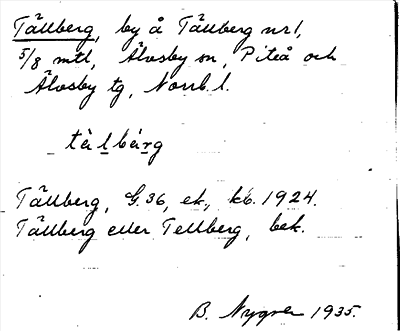 Tällberg, by å Tällberg nr 1,
5/8 mtl, Älvsby sn, Piteå och
Älvsby tg, Norrb. l.
tä̀lbärg
Tällberg, G. 36, ek., kb. 1924.
Tällberg eller Tellberg, bek.
B. Nygren 1935.